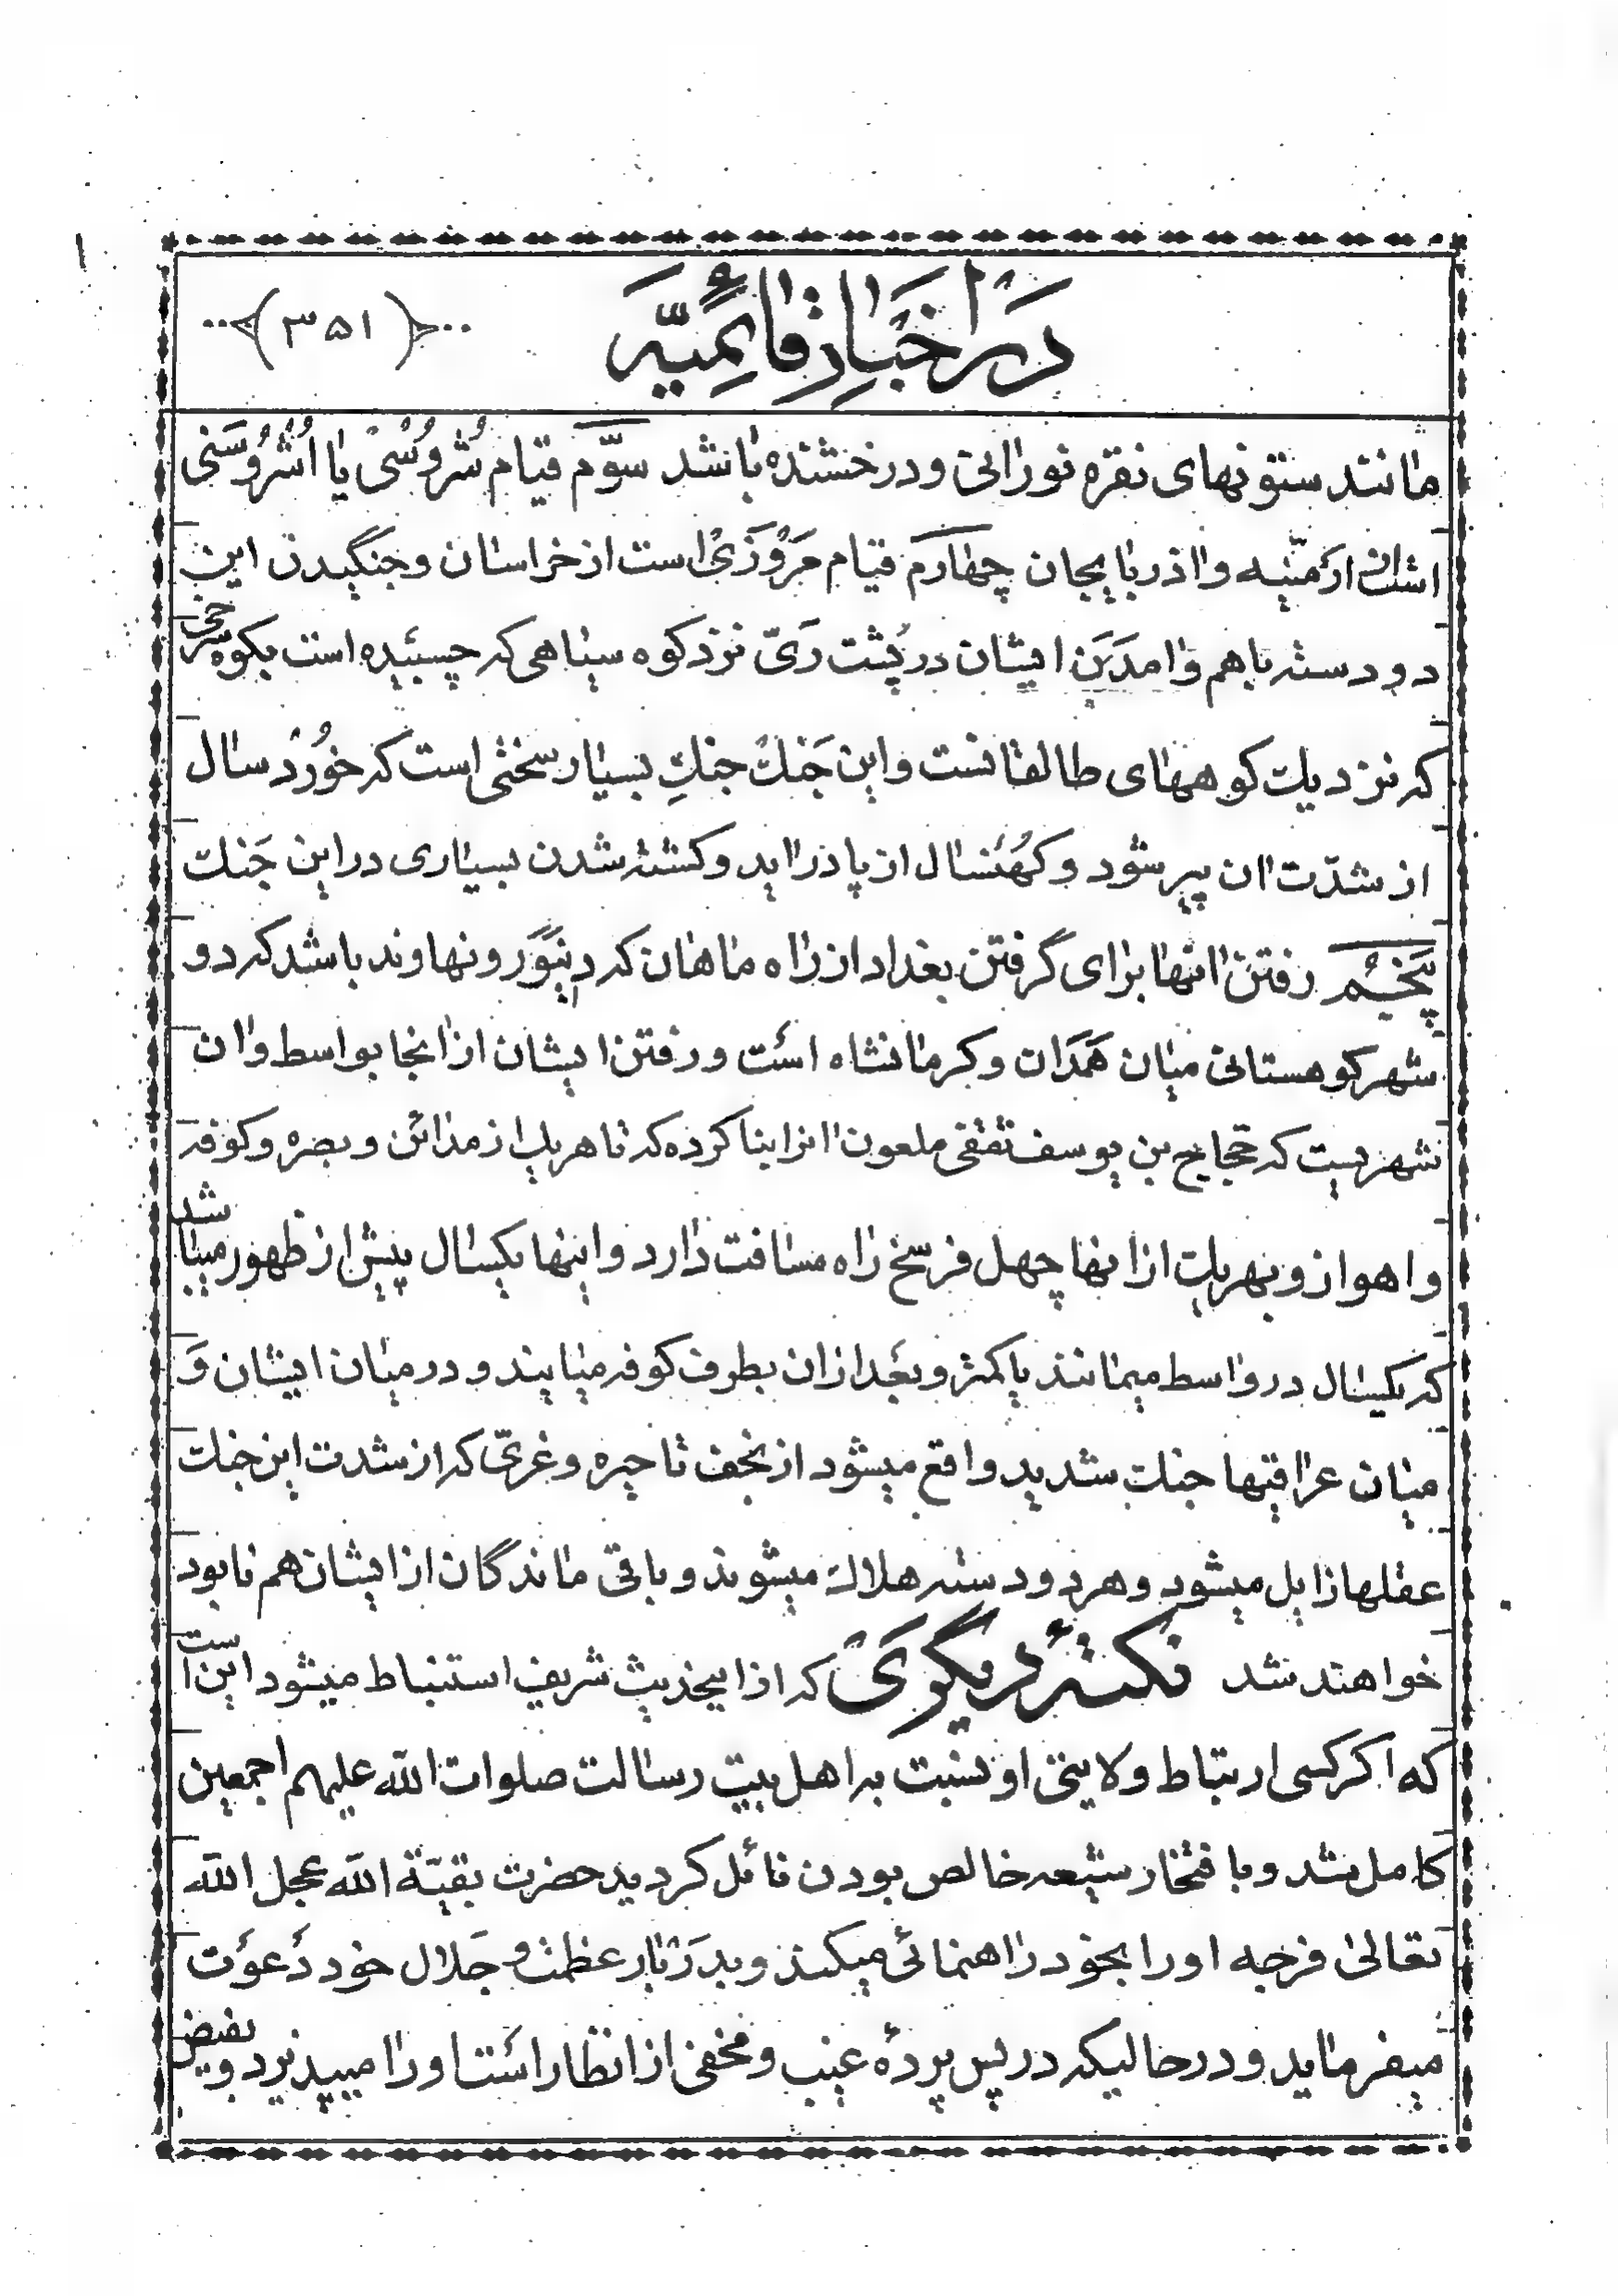 در اخبار قائمیّه
(۳۵۱)
مانند ستونهای نقره نورانی و درخشنده باشد سوّم قیام شُروُسْیْ یا اُشْرُوسَنی
است از ارْمَنّیه و اذربایجان چهارم قیام مَرْوَزَیْ است از خراسان و جنگیدن این
دو دسته باهم و امدَن ایشان در پُشت رَیّ نزد کوه سیاهی که چسبیده است بکوه سرخی
که نزدیک کوههای طالقانست و این جَنگ جنگِ بسیار سختی است که خوُرْد سال
از شدّت ان پیر شود و کُهَنسال از پا دراید و کشته شدن بسیاری در این جَنگ
پَنجُم رفتن انها برای گرفتن بغداد از راه ماهان که دینَوَر و نهاوند باشد که دو
شهر کوهستانی میان هَمَدان و کرمانشاه اسْت و رفتن ایشان از انجا بواسط و ان
شهریست که حجّاج بن یوسف ثقفی ملعون انرا بنا کرده که تا هریک از مدائن و بصره و کوفه
و اهواز و نهریک از انها چهل فرسخ راه مسافت دارد و اینها یکسال پیش از ظهور میباشد
که یکسال در واسط میمانند یا کمتر و بعْد از ان بطرف کوفه میایند و در میان ایشان وَ
میان عراقیها جنک شدید واقع میشود از نجف تا حیره و غریّ که از شدت این جنک
عقلها زایل میشود و هر دو دسته هلاک میشوند و باقی ماندگان از ایشان هم نابود
خواهند شد نکتهٔ دیگرَیْ که از اینحدیث شریف استنباط میشود این است
که اگر کسی ارتباط ولایتی او نسبت به اهل بیت رسالت صلوات الله علیهم اجمعین
کامل شد و با فتخار شیعه خالص بودن نائل کردید حضرت بقیّة الله عجل الله
تعالی فرجه او را بخود راهنمائی میکند و بدربار عظمت و جَلال خود دَعوَت
میفرماید و در حالیکه در پس پردهٔ غیب و مخفی از انظار است او را میپذیرد و بفیض